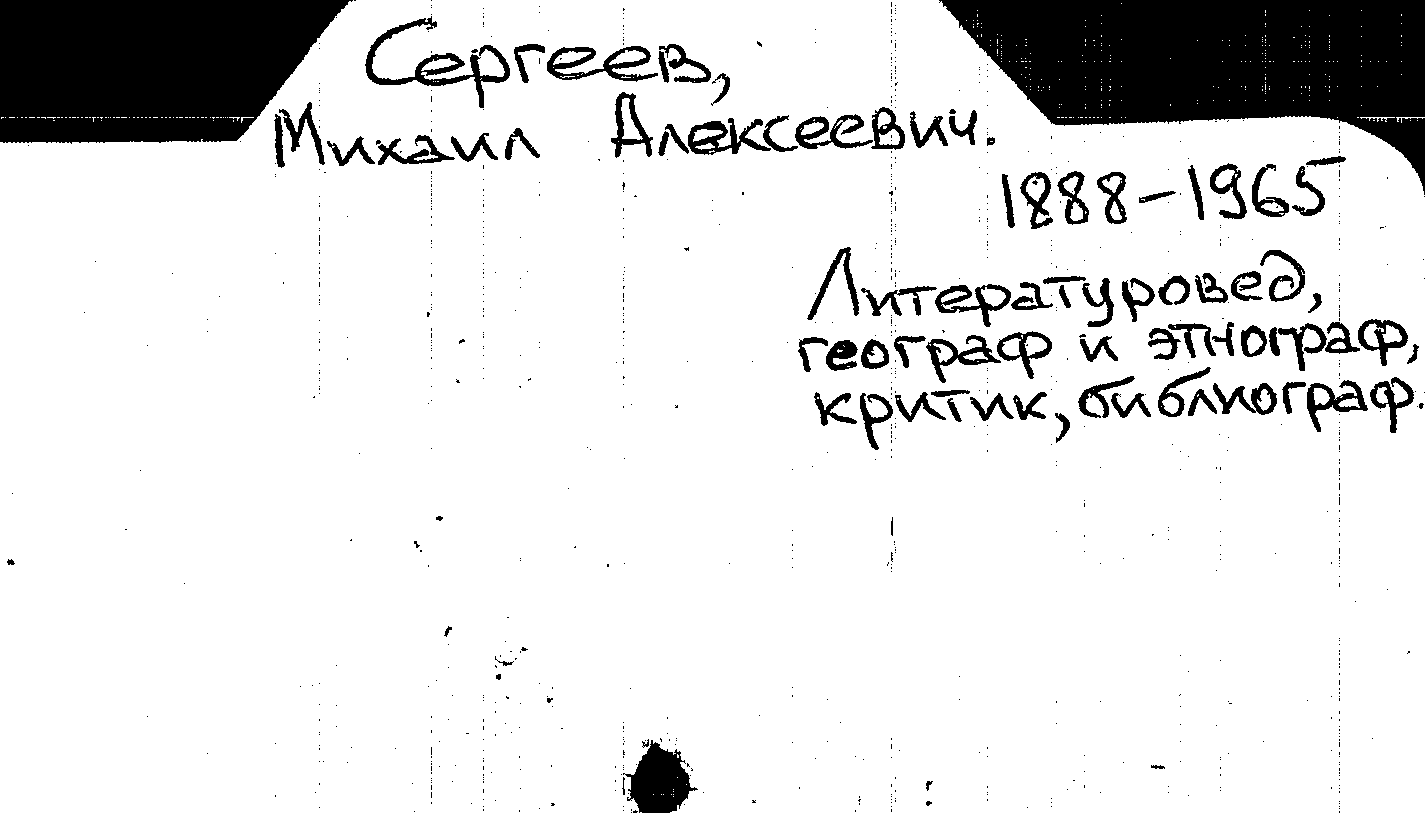 Сергеев,
Михаил Алексеевич.
1888-1965
Литературовед,
географ и этнограф,
критик, библиограф.